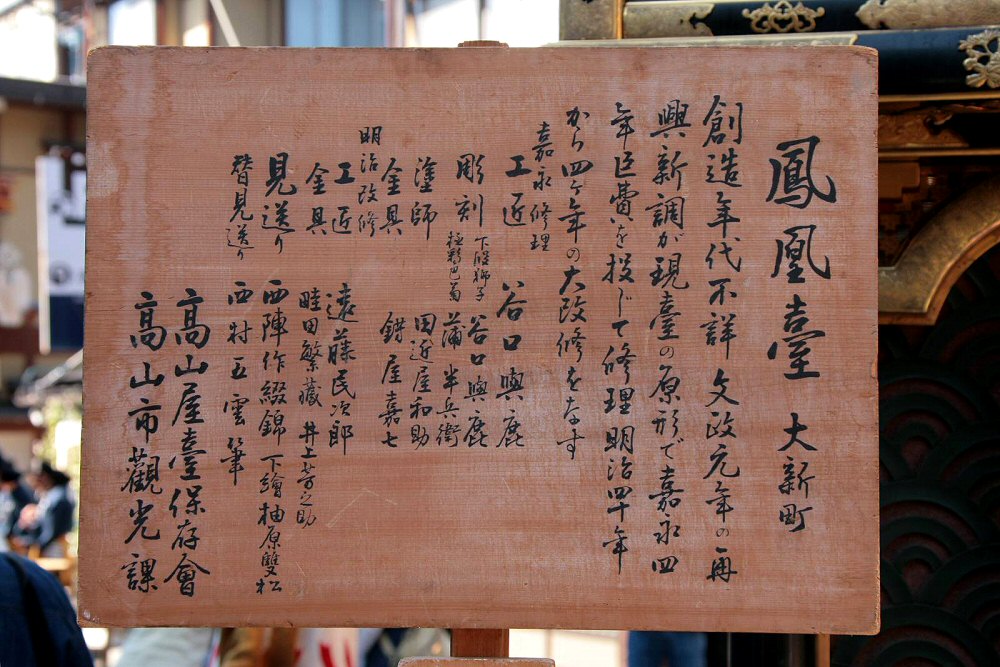 鳳凰臺 大新町
創造年代不詳 文政元年の再
興新調が現臺の原形で嘉永四
年巨費を投じて修理明治四十年
から四ヶ年の大改修をなす
嘉永修理
工匠 谷口與鹿
彫刻 下段獅子 谷口與鹿
蒲半兵衛
塗師 田近屋和助
金具 錯屋嘉七
明治改修
工匠 遠藤民次郎
金具 畦田繁藏 井上芳之助
見送り 西陣作綴錦 下繪柚原雙松
替見送り 西村五雲筆
高山屋臺保存會
高山市觀光課